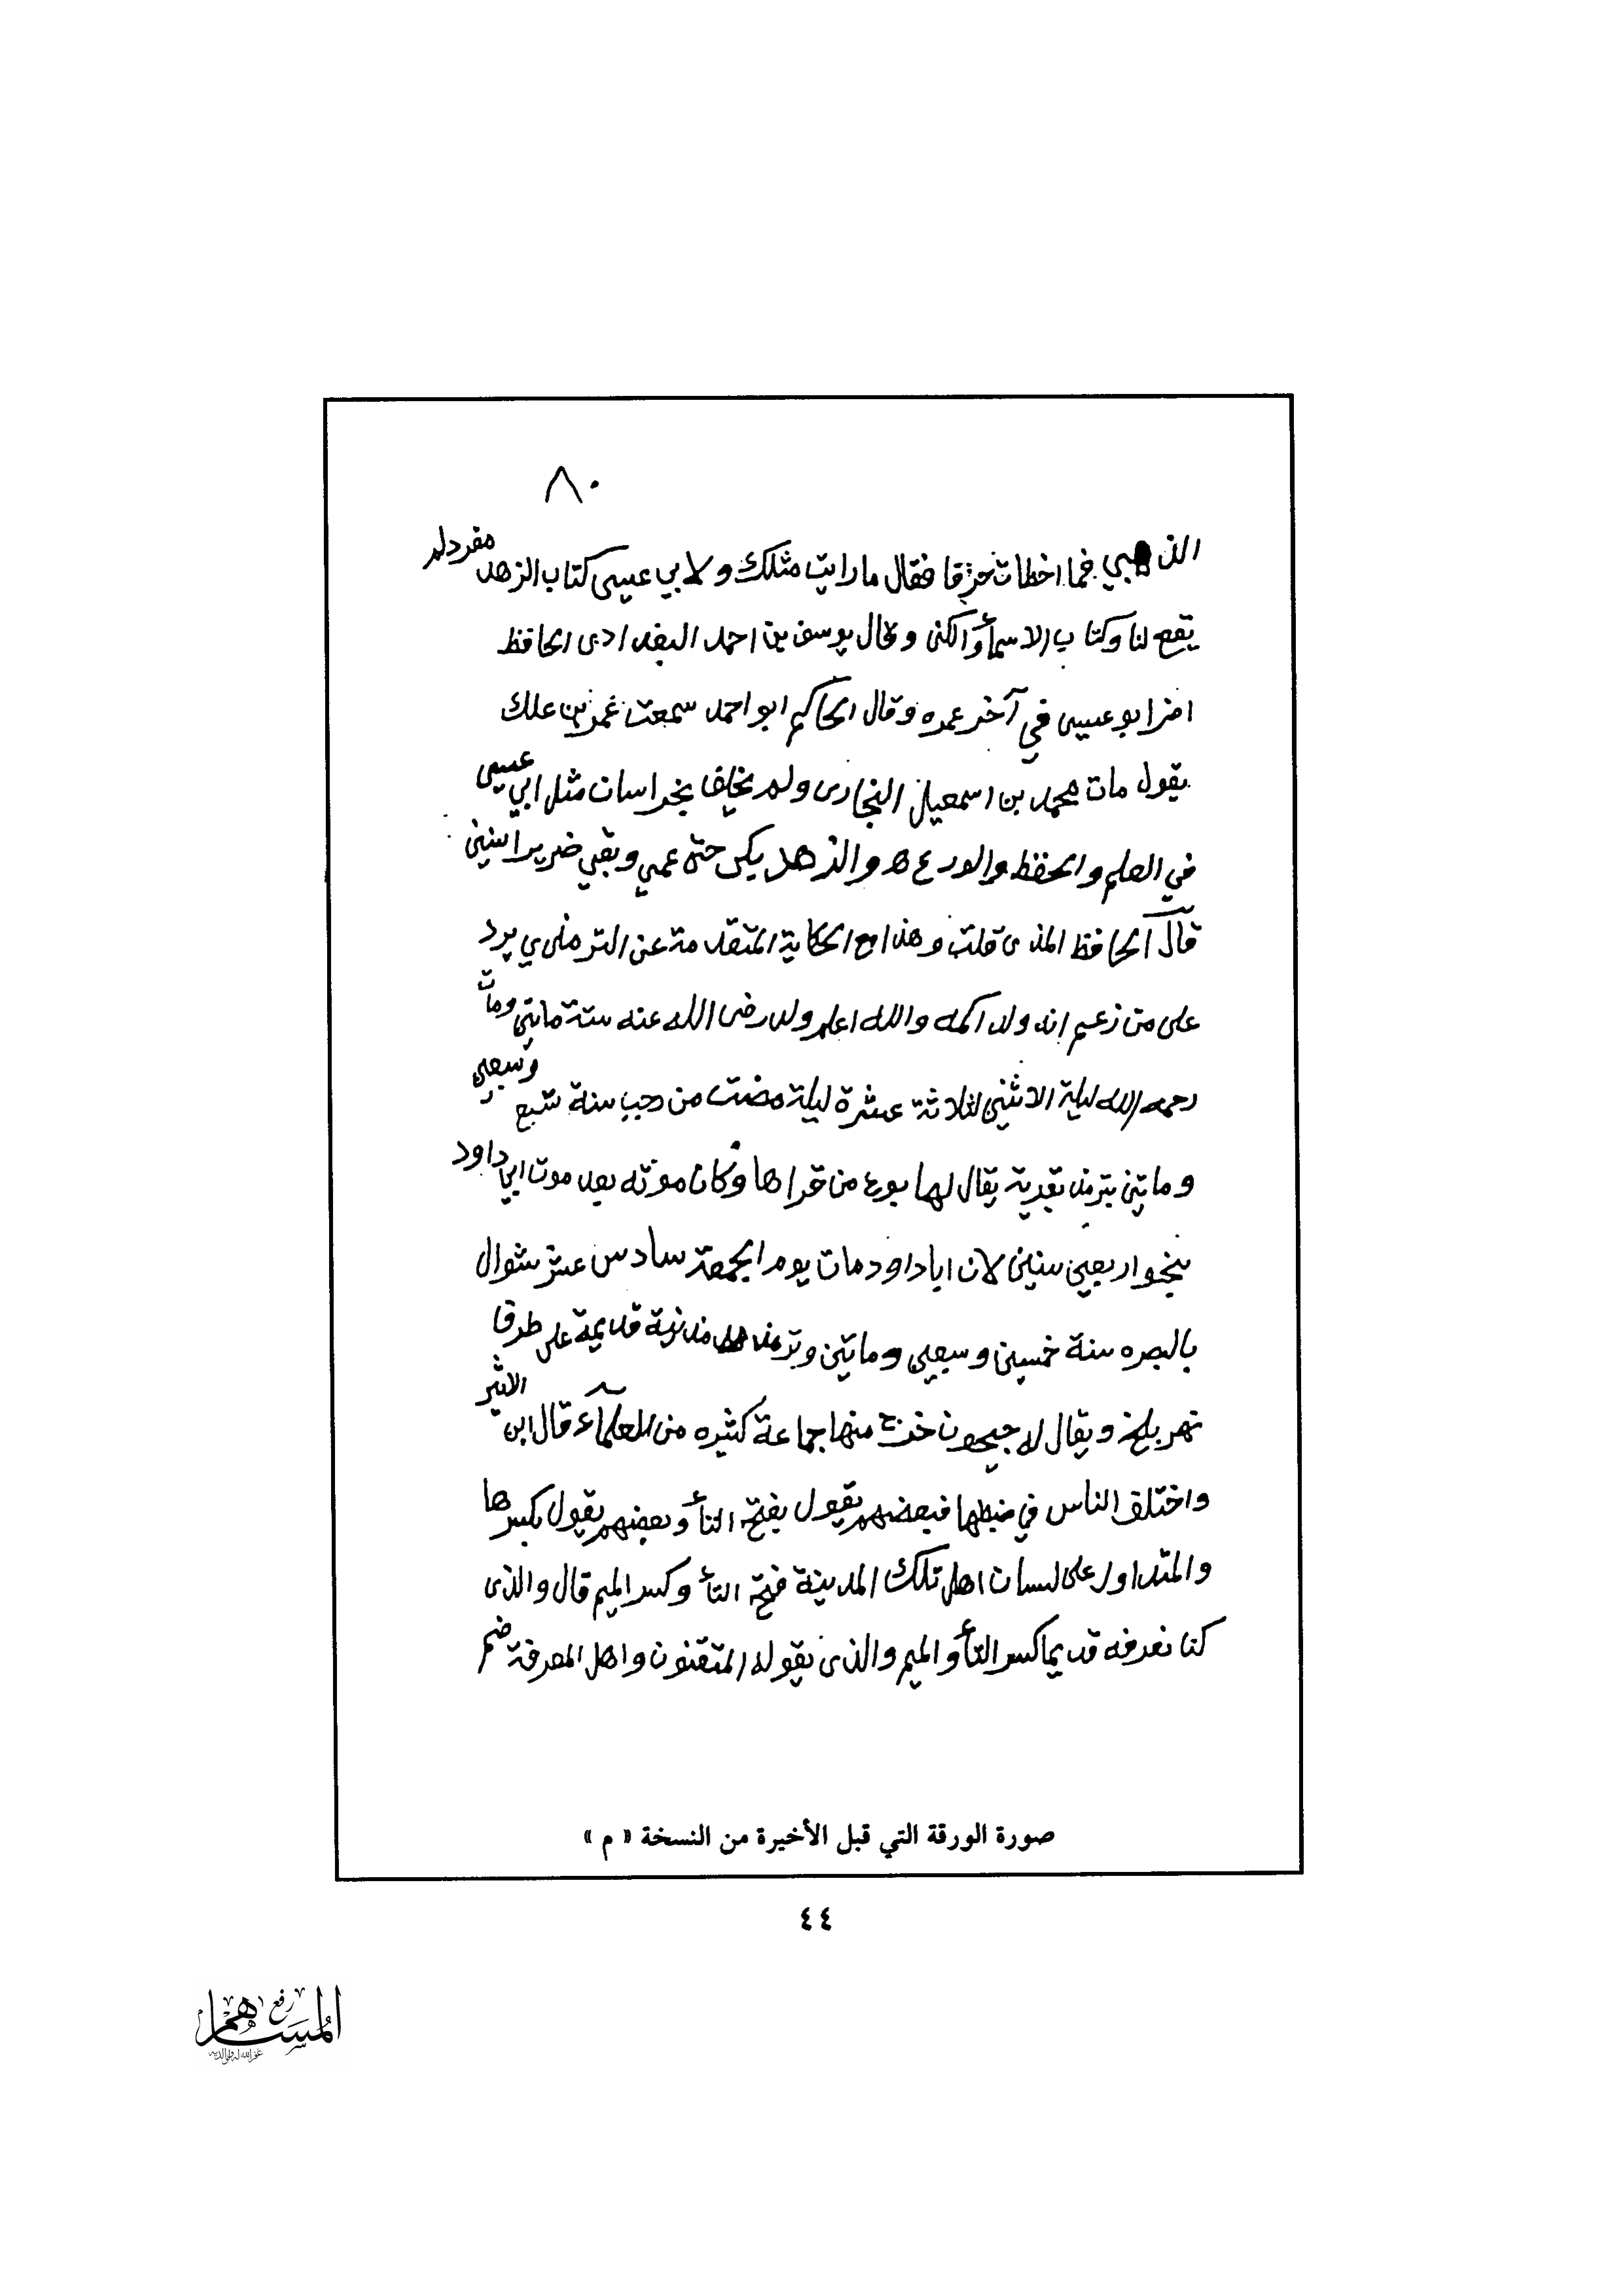 ٨٠
الذهبي فما اخطات حرفا فقال ما رايت مثلك ولابي عيسى كتاب الزهد مفرد لم
يقع لنا وكتاب الاسمأ والكنى وقال يوسف بن احمد البغدادى الحافظ
اضر ابو عيسى في آخر عمره وقال الحاكم ابو احمد سمعت عمر بن علك
يقول مات محمد بن اسمعيل البخارى ولم يخلف بخراسان مثل ابي عيسى
في العلم والحفظ والورع والزهد بكى حتى عمي وبقي ضريرا سنين
قال الحافظ المذى قلت وهذا مع الحكاية المتقدمة عن الترمذي يرد
على من زعم انه ولد اكمه والله اعلم ولد رضى الله عنه سنة مايتين ومات
رحمه الله ليلة الاثنين لثلاثة عشرة ليلة مضت من رجب سنة تسبع وسبعين
ومايتين بترمذ بقرية يقال لها بوغ من قراها وكان موته بعد موت ابي داود
بنحو اربعين سنين لان ابا داود مات يوم الجمعة سادس عشر شوال
بالبصره سنة خمسين وسبعين ومايتين وترمذ مدينة قديمة على طرق
نهر بلخ ويقال له جيحون خرج منها جماعة كثيره من العلمآء قال ابن الاثير
واختلف الناس في ضبطها فبعضهم يقول بفتح التأ وبعضهم يقول بكسرها
والمتداول على لسان اهل تلك المدينة فتح التأ وكسر الميم قال والذى
كنا نعرفه قديما كسر التأ والميم والذى يقوله المتقنون واهل المعرفة ضم
صورة الورقة التي قبل الأخيرة من النسخة « م »
٤٤
رفع
المساهم
غفر الله له ولوالديه